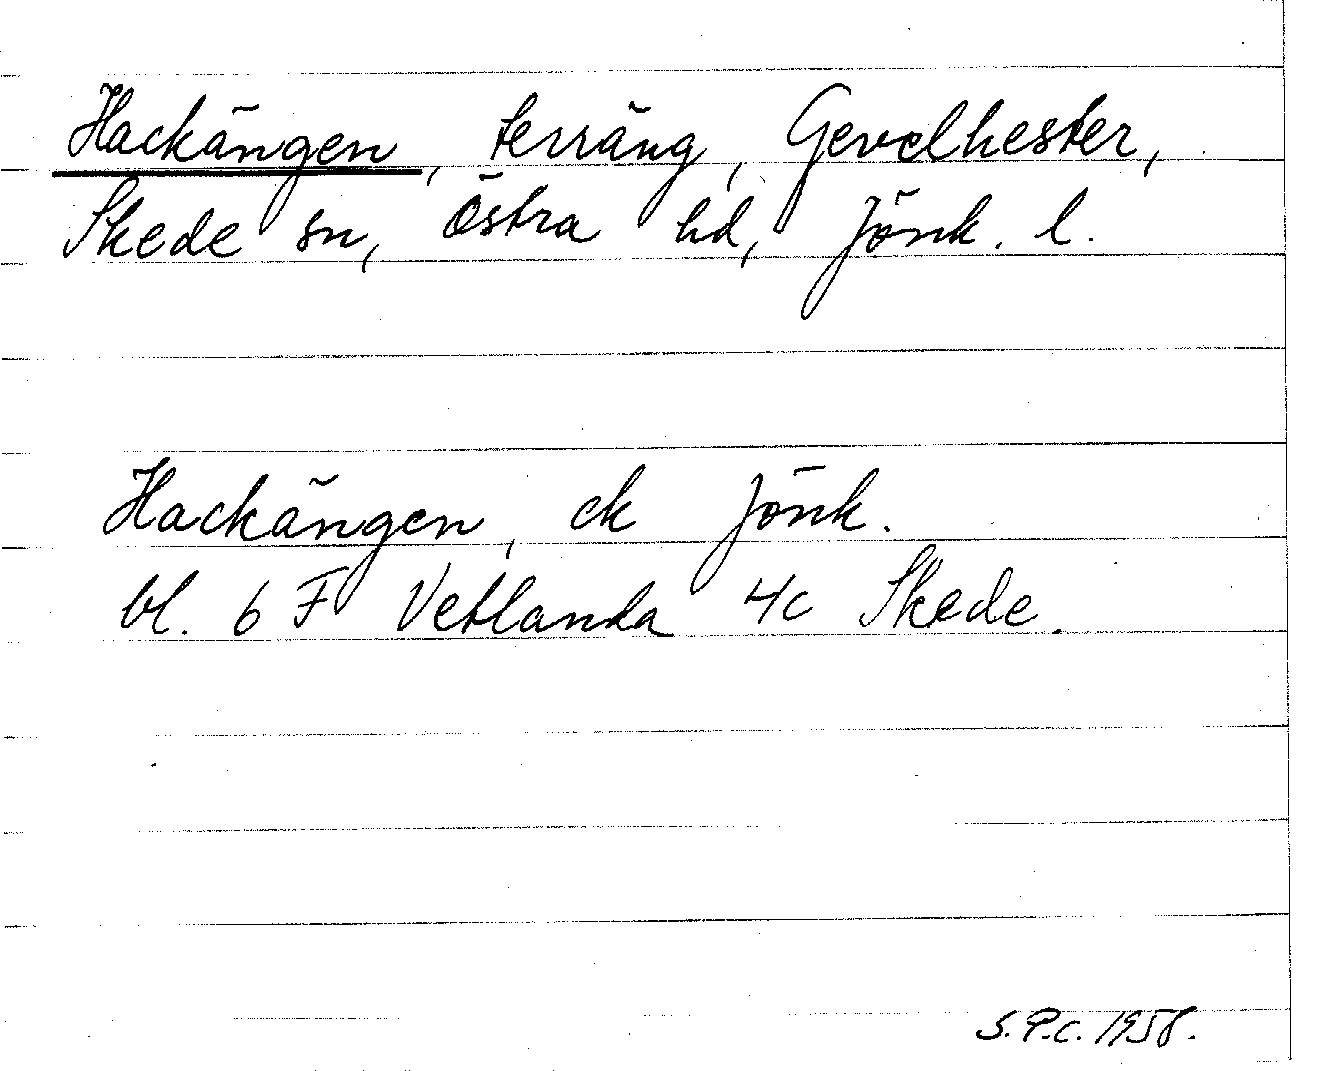 Hackängen, terräng, Gevelhester,
Skede sn, Östra hd, Jönk. l.
Hackängen, ek Jönk.
bl. 6 F Vetlanda 4c Skede.
S.P.C. 1958.